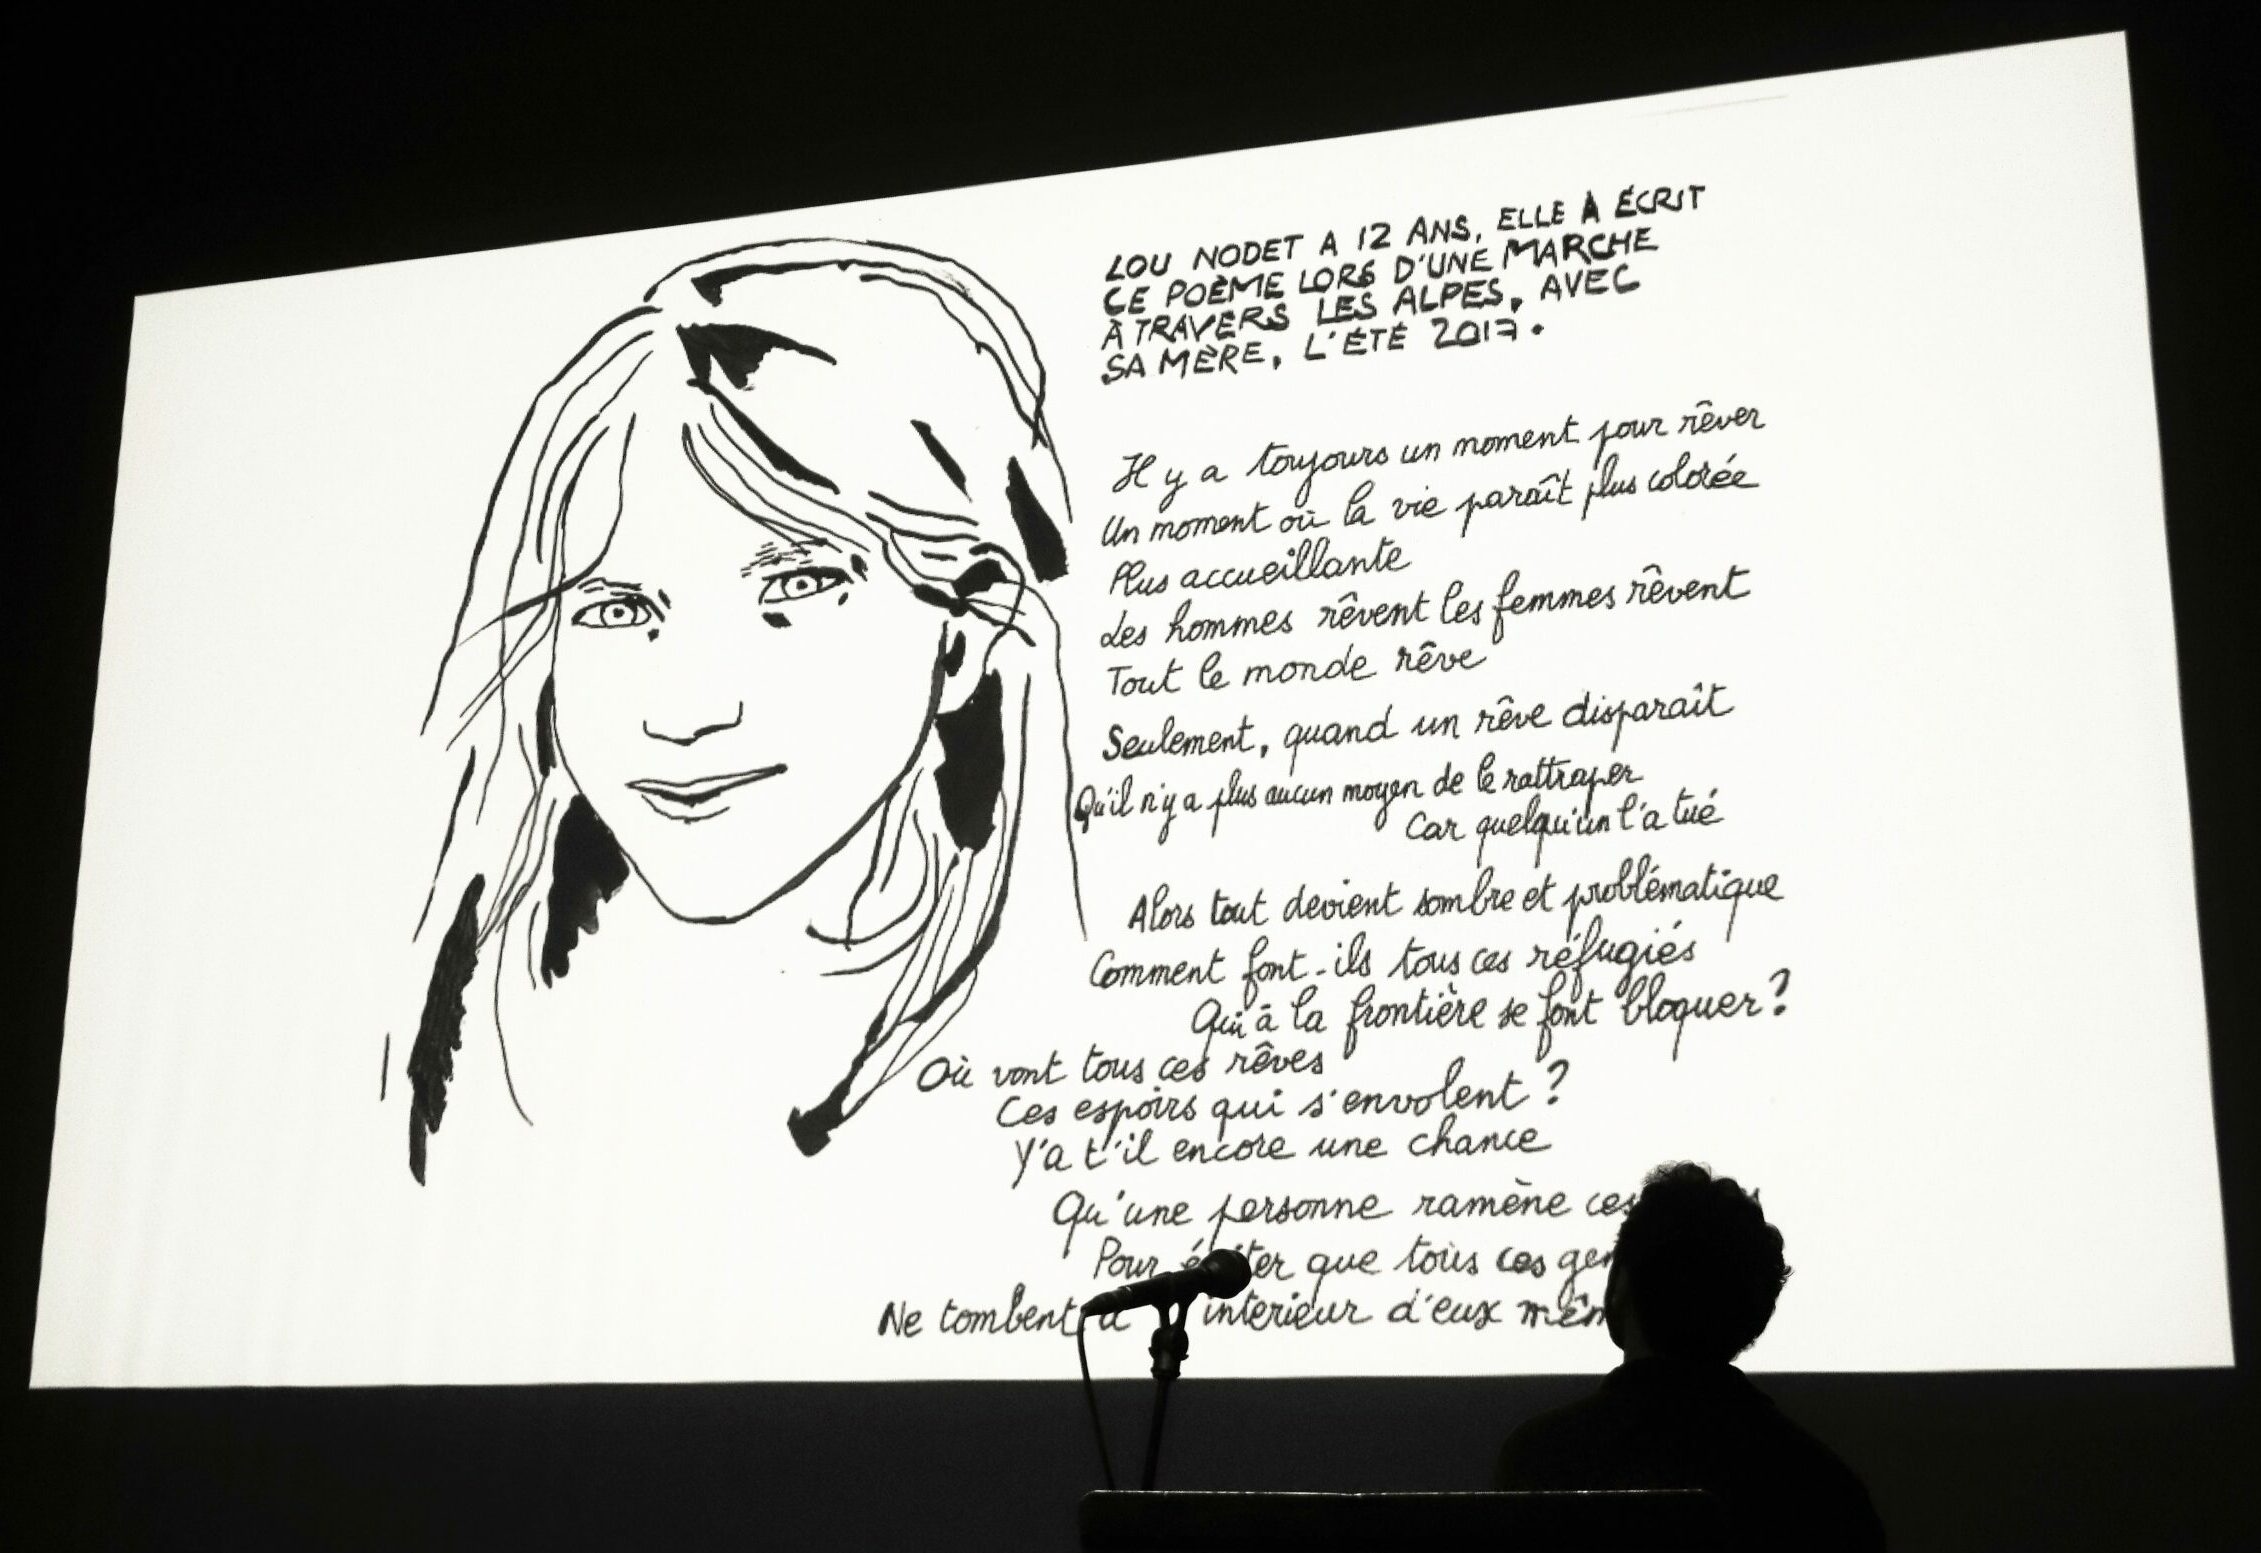 LOU NODET A 12 ANS, ELLE A ÉCRIT
CE POÈME LORS D'UNE MARCHE
À TRAVERS LES ALPES, AVEC
SA MÈRE, L'ÉTÉ 2017.
Il y a toujours un moment pour rêver
Un moment où la vie paraît plus colorée
Plus accueillante
Les hommes rêvent les femmes rêvent
Tout le monde rêve
Seulement, quand un rêve disparaît
Qu'il n'y a plus aucun moyen de le rattraper
Car quelqu'un l'a tué
Alors tout devient sombre et problématique
Comment font-ils tous ces réfugiés
Qui à la frontière se font bloquer?
Où vont tous ces rêves
Ces espoirs qui s'envolent?
Y'a t'il encore une chance
Qu'une personne ramène ces
Pour que tous ces
Ne tombent interieur d'eux